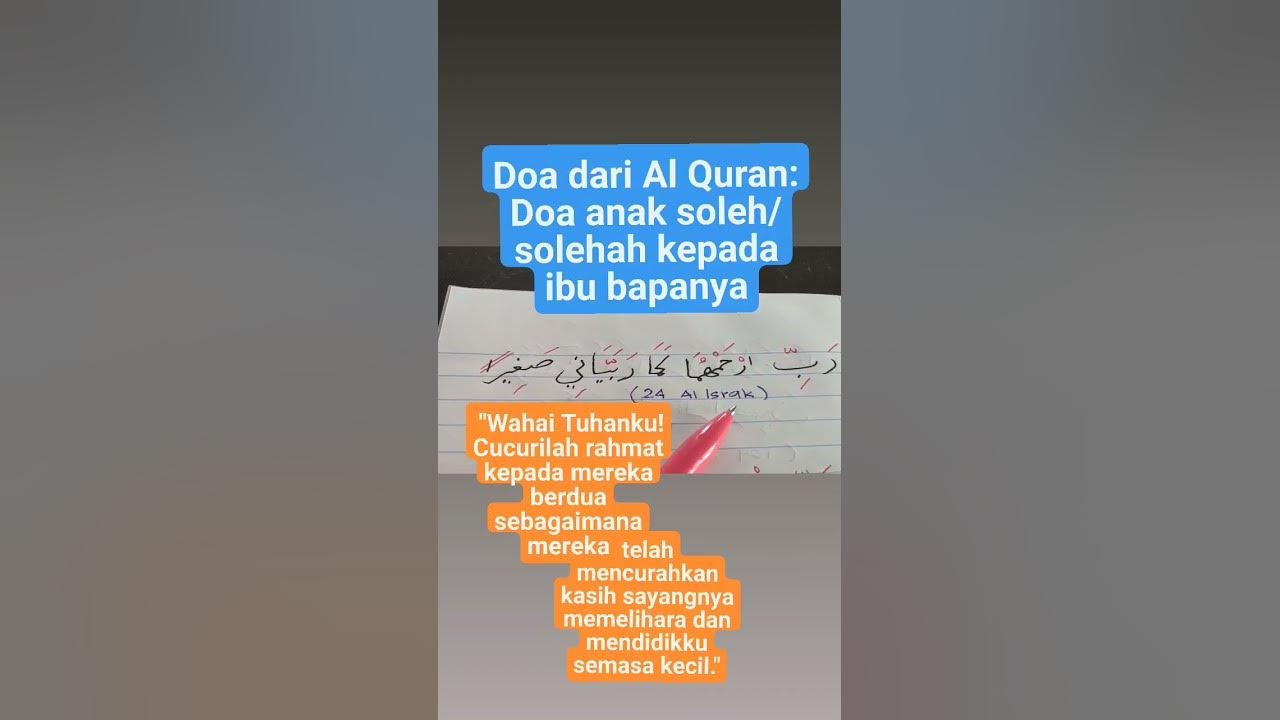 Doa dari Al Quran:
Doa anak soleh/
solehah kepada
ibu bapanya
رَبِّ ارْحَمْهُمَا كَمَا رَبَّيَانِي صَغِيرًا
(24 Al Israk)
"Wahai Tuhanku!
Cucurilah rahmat
kepada mereka
berdua
sebagaimana
mereka telah
mencurahkan
kasih sayangnya
memelihara dan
mendidikku
semasa kecil."